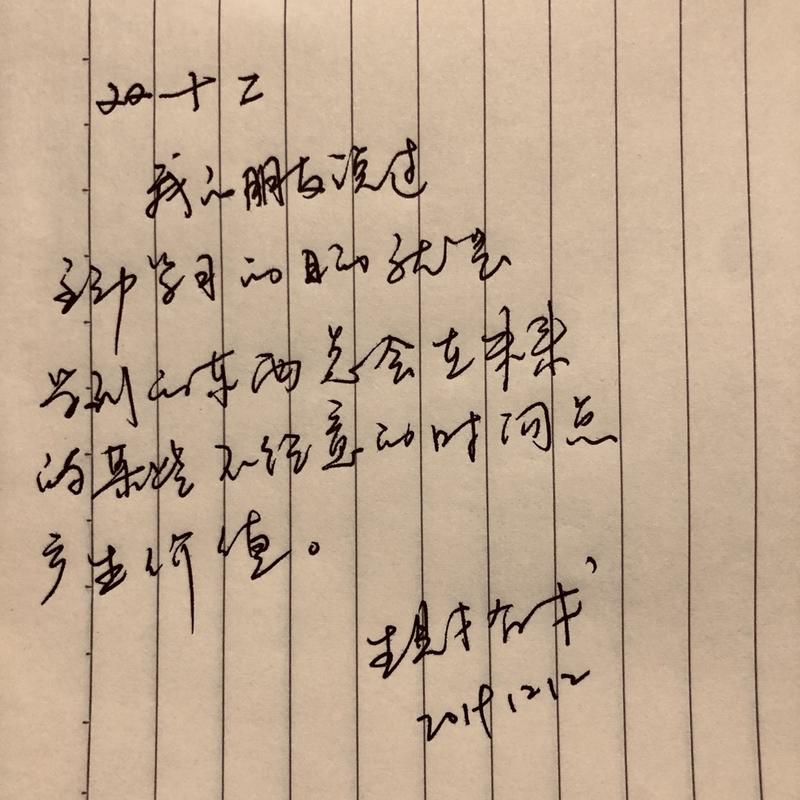 双十二
我的朋友说过
学习的目的就是
学到的东西总会在未来
的某些不经意的时间点
产生价值。
20191212